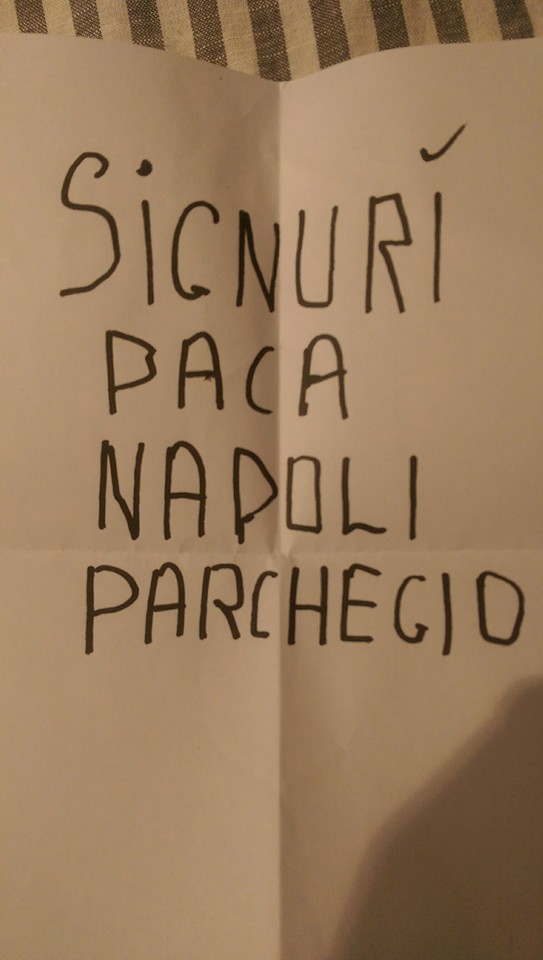 SiGNURÍ
PACA
NAPOLI
PARCHEGIO